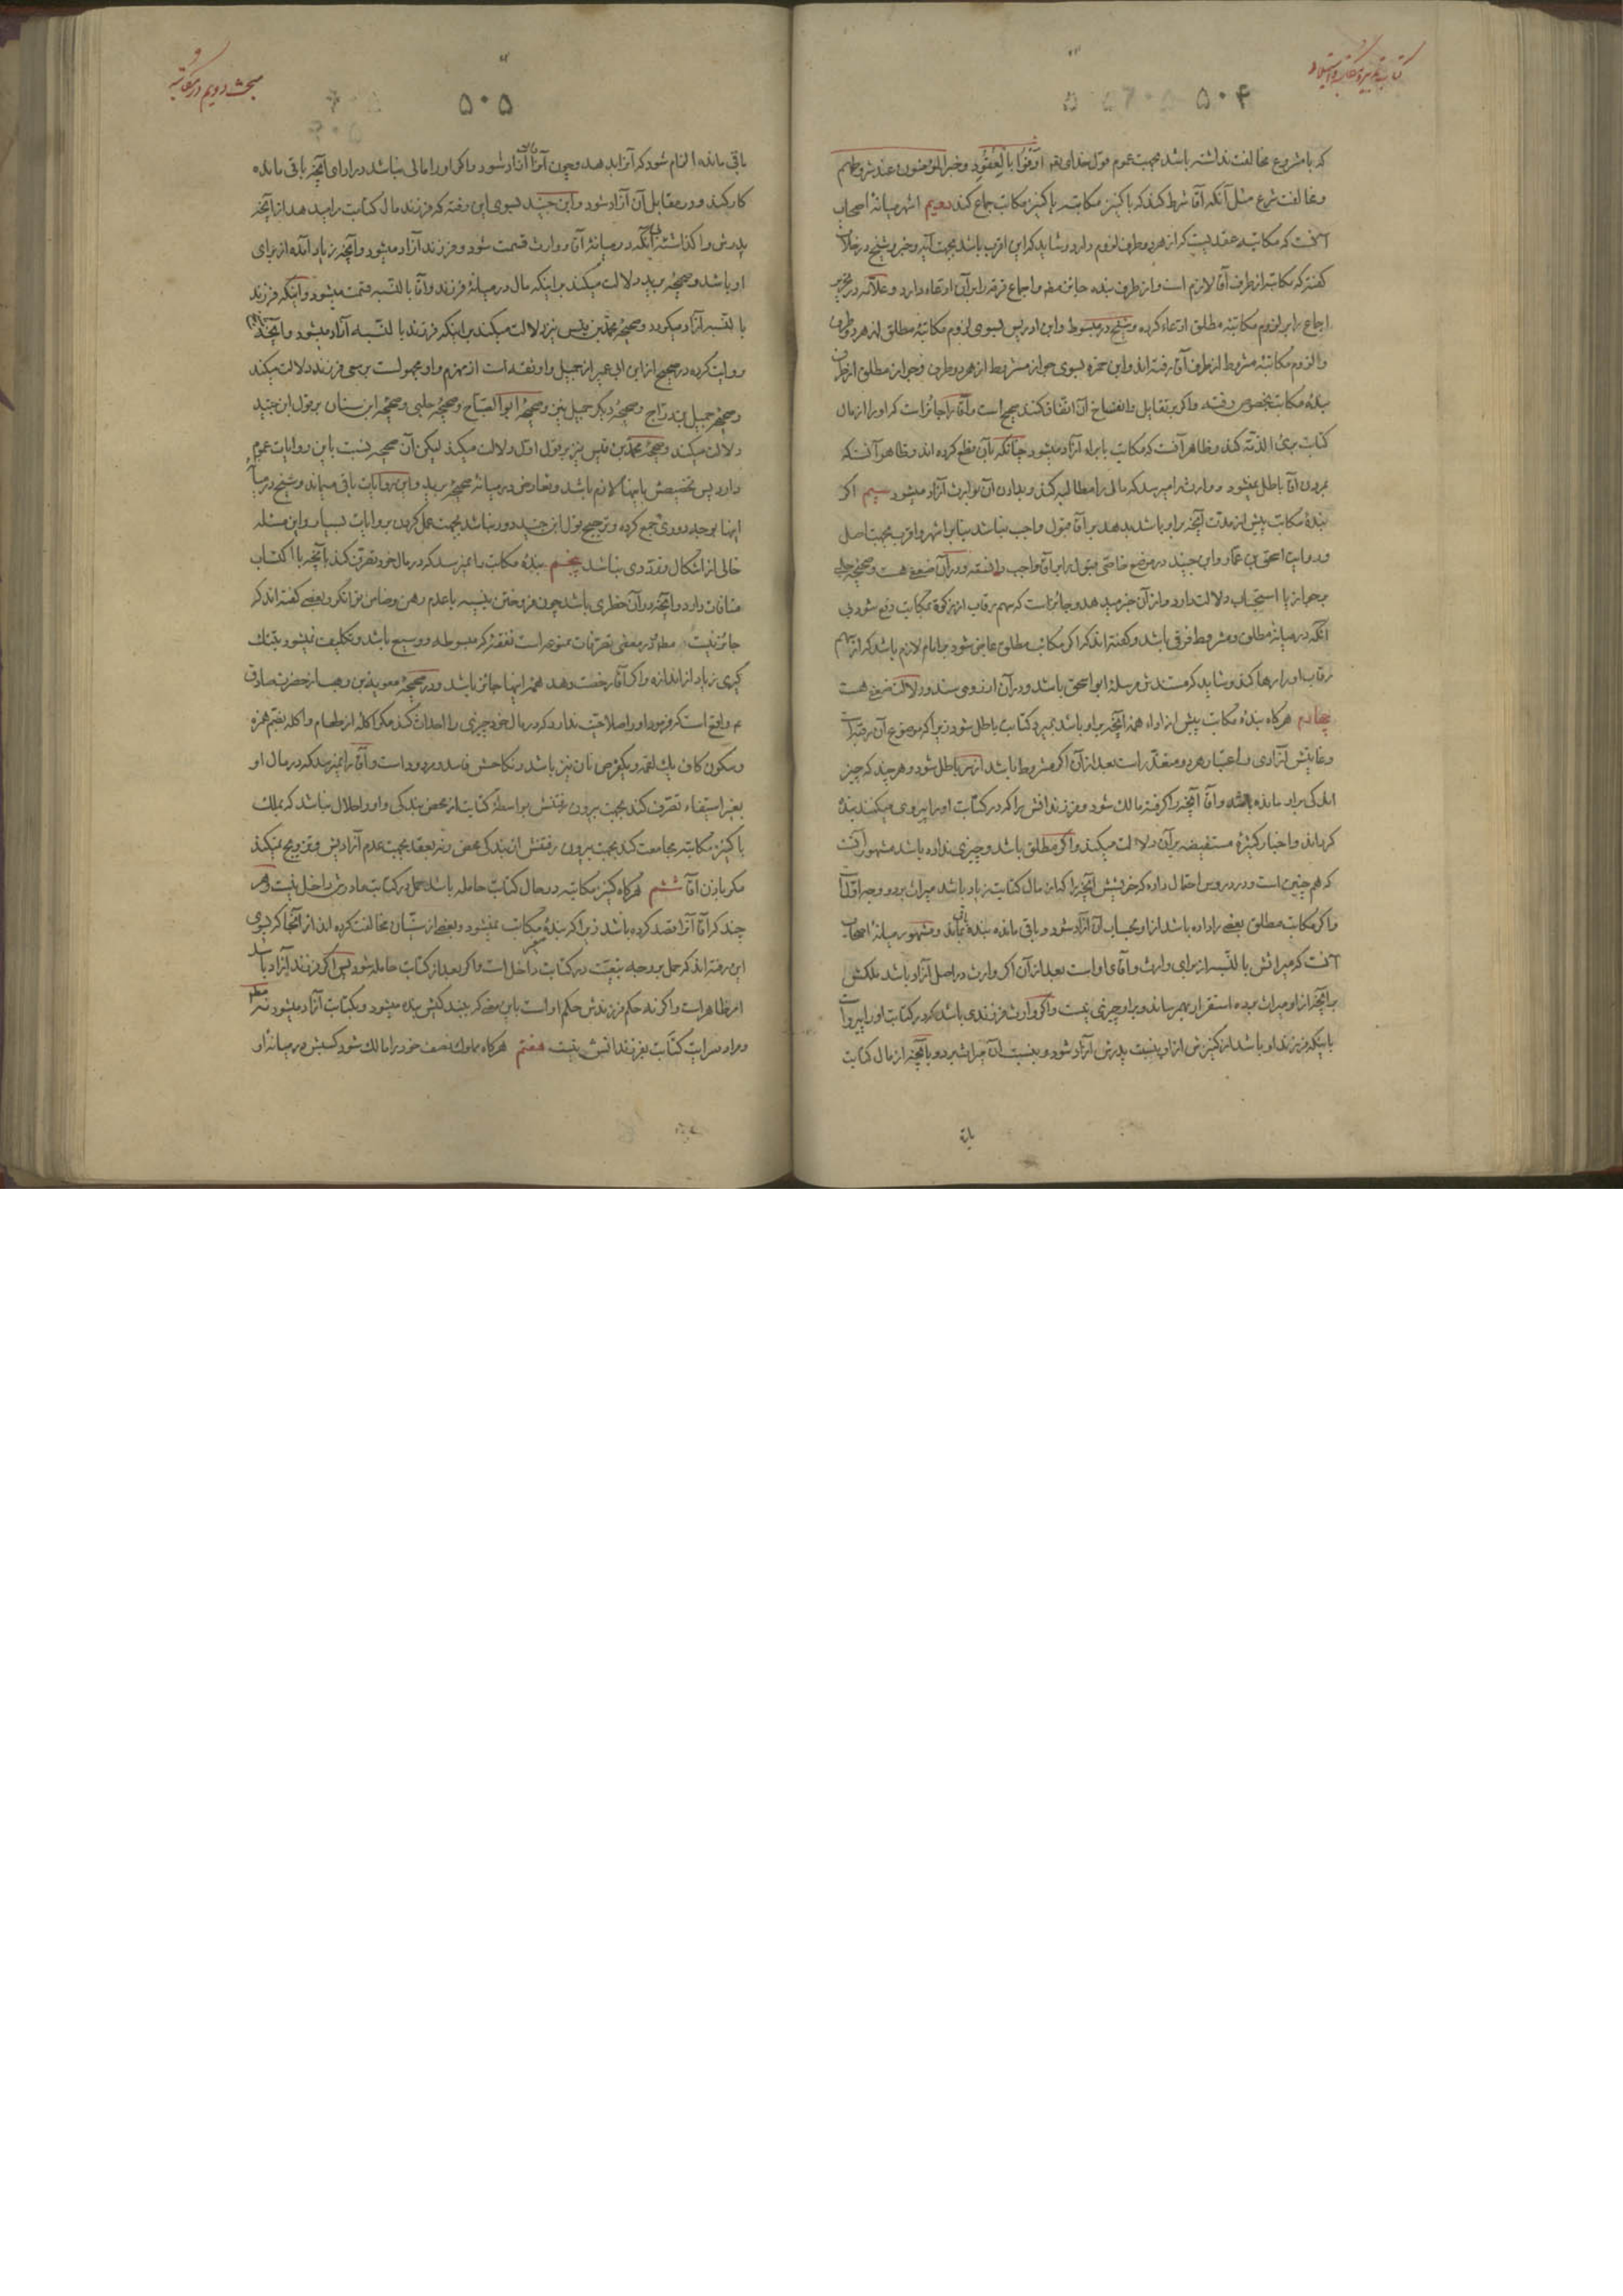 ۵۰۴
که با مشروع مخالفت نداشته باشد بجهت عموم قول خدای تعم اَوْفُوا بِالْعُقُودِ و خبر المؤمنون عند شروطهم
و مخالفت شرع مثل آنکه آقا شرط کند که با کنیز مکاتبه یا کنیز مکاتب جماع کند دویم اشهر میانهٔ اصحاب
آنست که مکاتبه عقدیست که از هر دو طرف لزوم دارد و شاید که این اقرب باشد بجهت آیه و خبر و شیخ در خلاف
گفته که مکاتبه از طرف آقا لازم است و از طرف بنده جایز و اجماع فرقه را بر آن ادعاء دارد و علامه در تحریر
اجماع را بر لزوم مکاتبه مطلق ادعاء کرده و شیخ در مبسوط و ابن ادریس بسوی لزوم مکاتبهٔ مطلق از هر دو طرف
و لزوم مکاتبهٔ مشروط از طرف آقا رفته‌اند و ابن حمزه بسوی جواز مشروط از هر دو طرف و جواز مطلق از طرف
بندهٔ مکاتب بخصوص رفته و اگر بر تقایل و انفساخ آن اتفاق کنند صحیح است و آقا را جائز است که او را از مال
کتابت بریٔ الذمّه کند و ظاهر آنست که مکاتب بابراء آزاد میشود چنانکه بآن قطع کرده‌اند و ظاهر آنست که
بمردن آقا باطل نمیشود و وارث را میرسد که مالی را مطالبه کند و بدادن آن بوارث آزاد میشود سیم اگر
بندهٔ مکاتب پیش از مدت آنچه بر او باشد بدهد بر آقا قبول واجب نباشد بنابر اشهر و اقرب بجهت اصل
و روایت اسحق بن عمار و ابن جنید در موضع خاصی قبول را بر آقا واجب دانسته و در آن ضعفی هست و صحیحهٔ حلبی
بجواز یا استحباب دلالت دارد و از آن خبر میدهد و جائز است که سهم رقاب از زکوة بمکاتب دفع شود بی
آنکه در میانهٔ مطلق و مشروط فرقی باشد و گفته‌اند که اگر مکاتب مطلق عاجز شود بر امام لازم باشد که از سهم
رقاب او را رها کند و شاید که مستندش مرسلهٔ ابو اسحق باشد و در آن از روی سند و دلالت ضعفی هست
چهارم هرگاه بندهٔ مکاتب پیش از اداء همه آنچه بر او باشد بمیرد کتابت باطل شود زیرا که موضوع آن رقبه است
و غایتش آزادی و اعتبار هر دو متعذّر است بعد از آن اگر مشروط باشد از سر باطل شود و هر چند که چیز
اندکی بر او مانده باشد و آقا آنچه را که گرفته مالک شود و فرزندانش را که در کتابت او را پیروی میکنند بنده
گرداند و اخبار کثیرهٔ مستفیضه بر آن دلالت میکند و اگر مطلق باشد و چیزی نداده باشد مشهور آنست
که هم چنین است و در دروس احتمال داده که خویشش آنچه را که از مال کتابت زیاد باشد میراث برد و وجه اقل است
و اگر مکاتب مطلق بعضی را داده باشد از او بحساب آن آزاد شود و باقی مانده بنده بماند و مشهور میانهٔ اصحاب
آنست که میراثش بالنّسبه از برای وارث و آقای او است بعد از آن اگر وارث در اصل آزاد باشد ملکش
بر آنچه از او میراث برده استقرار بهم رساند و بر او چیزی نیست و اگر وارث فرزندی باشد که در کتابت او را پیرو است
باینکه فرزند او باشد از کنیزش از او بنسبت پدرش آزاد شود و بنسبت آن میراث برد و بآنچه از مال کتابت
۵۰۵
مبحث دویم در مکاتبه
باقی مانده الزام شود که آنرا بدهد و چون آنرا آزاد شود و اگر او را مالی نباشد در ادای آنچه باقی مانده
کار کند و در مقابل آن آزاد شود و ابن جنید بسوی این رفته که فرزند مال کتابت را میدهد از آنچه
پدرش واگذاشته بی آنکه در میانهٔ آقا و وارث قسمت شود و فرزند آزاد میشود و آنچه زیاد آمده از برای
او باشد و صحیحهٔ برید دلالت میکند بر اینکه مال در میانهٔ فرزند و آقا بالنّسبه قسمت میشود و اینکه فرزند
بالنّسبه آزاد میگردد و صحیحهٔ محمّد بن قیس نیز دلالت میکند بر اینکه فرزند بالنّسبه آزاد میشود و آنچه
روایت کرده در صحیح از ابن ابی عمیر از جمیل و او ثقه است از مهزم و او مجهولست بر سعی فرزند دلالت میکند
و صحیحهٔ جمیل بن درّاج و صحیحهٔ دیگر جمیل نیز و صحیحهٔ ابو الصّباح و صحیحهٔ حلبی و صحیحهٔ ابن سنان بر قول ابن جنید
دلالت میکند و صحیحهٔ محمّد بن قیس نیز بر قول اوّل دلالت میکند لیکن آن صحیحه نسبت باین روایات عموم
دارد پس تخصیصش باینها لازم باشد و تعارض در میانهٔ صحیحهٔ برید و این روایات باقی میماند و شیخ در میانهٔ
اینها بوجه دوری جمع کرده و ترجیح قول ابن جنید دور نباشد بجهت عمل کردن بروایات بسیار و این مسئله
خالی از اشکال و تردّدی نباشد پنجم بندهٔ مکاتب را نمیرسد که در مال خود تصرّف کند بآنچه با اکتساب
منافات دارد و آنچه در آن خطری باشد چون فروختن بنسیه با عدم رهن و ضامن توانگر و بعضی گفته‌اند که
جائز نیست مطلق و در معنی تصرّفات ممنوعه است نفقهٔ که مبسوطه و وسیع باشد و تکلیف نمیشود بتنک
گیری زیاد از اندازه و اگر آقا رخصت دهد همه اینها جائز باشد و در صحیحهٔ معویة بن وهب از حضرت صادق
ع واقع است که فرمود او را صلاحیّت ندارد که در مال خود چیزی را احداث کند مگر اکله از طعام و اکله بضم همزه
و سکون کاف یک لقمه و یکقرص نان نیز باشد و نکاحش فاسد و مردود است و آقا را نمیرسد که در مال او
بغیر استیفاء تصرّف کند بجهت بیرون رفتنش بواسطهٔ کتابت از محض بندگی و او را حلال نباشد که بملک
با کنیز مکاتبه مجامعت کند بجهت بیرون رفتنش از بندگی محض و نه بعقد بجهت عدم آزادیش و تزویج نمیکند
مگر باذن آقا ششم هرگاه کنیز مکاتبه در حال کتابت حامله باشد حمل در کتابت مادرش داخل نیست و هر
چند که آقا آنرا قصد کرده باشد زیرا که بندهٔ صغیر مکاتب نمیشود و بعضی از سنّیان مخالفت کرده‌اند از آنجا که بسوی
این رفته‌اند که حمل بر وجه تبعیّت در کتابت داخل است و اگر بعد از کتابت حامله شود پس اگر فرزند آزاد باشد
امر ظاهر است و اگر نه حکم فرزندش حکم او است باین معنی که ببندگیش بنده میشود و بکتابت آزاد میشود
و مراد سرایت کتابت بفرزندانش نیست هفتم هرگاه مملوک نصف خود را مالک شود کسبش در میانه او